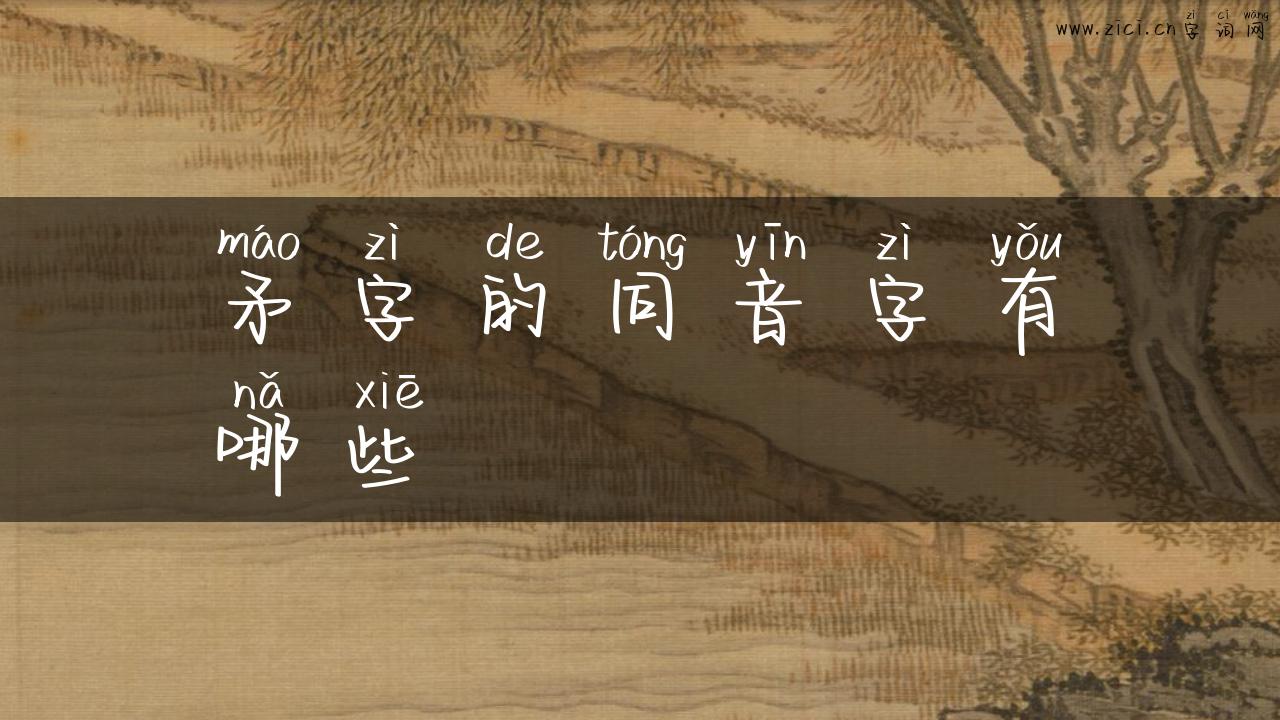 zì cí wǎng
www.zici.cn字词网
máo zì de tóng yīn zì yǒu
矛字的同音字有
nǎ xiē
哪些